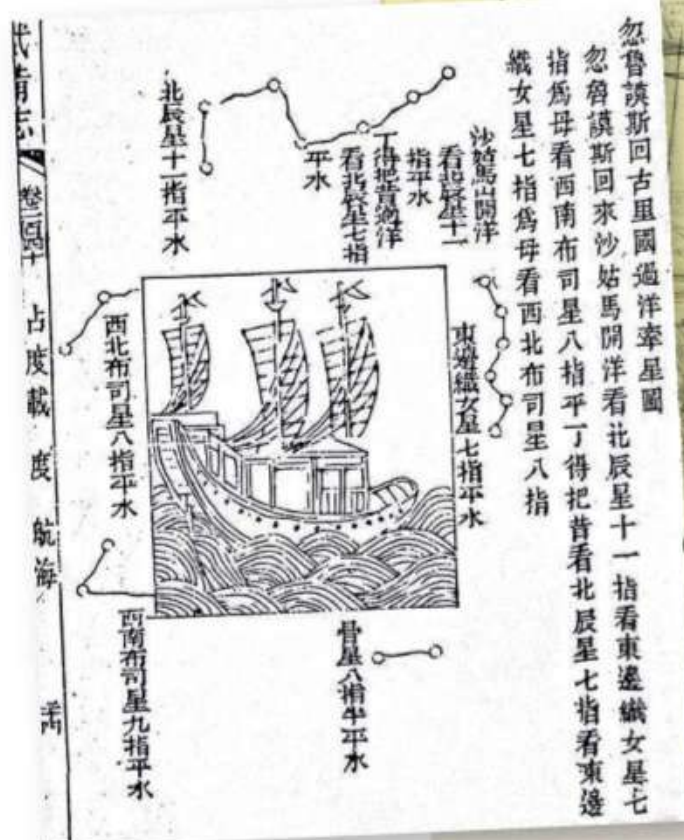 忽魯謨斯回古里國過洋牽星圖
忽魯謨斯回來沙姑馬開洋看北辰星十一指看東邊織女星七
指爲母看西南布司星八指平丁得把昔看北辰星七指看東邊
織女星七指爲母看西北布司星八指
沙姑馬山開洋
看北辰星十一
指平水
丁得把昔過洋
看北辰星七指
平水
北辰星十一指平水
東邊織女星七指平水
西北布司星八指平水
骨星八指半平水
西南布司星九指平水
武備志
卷二百四十
占度載
度
航海